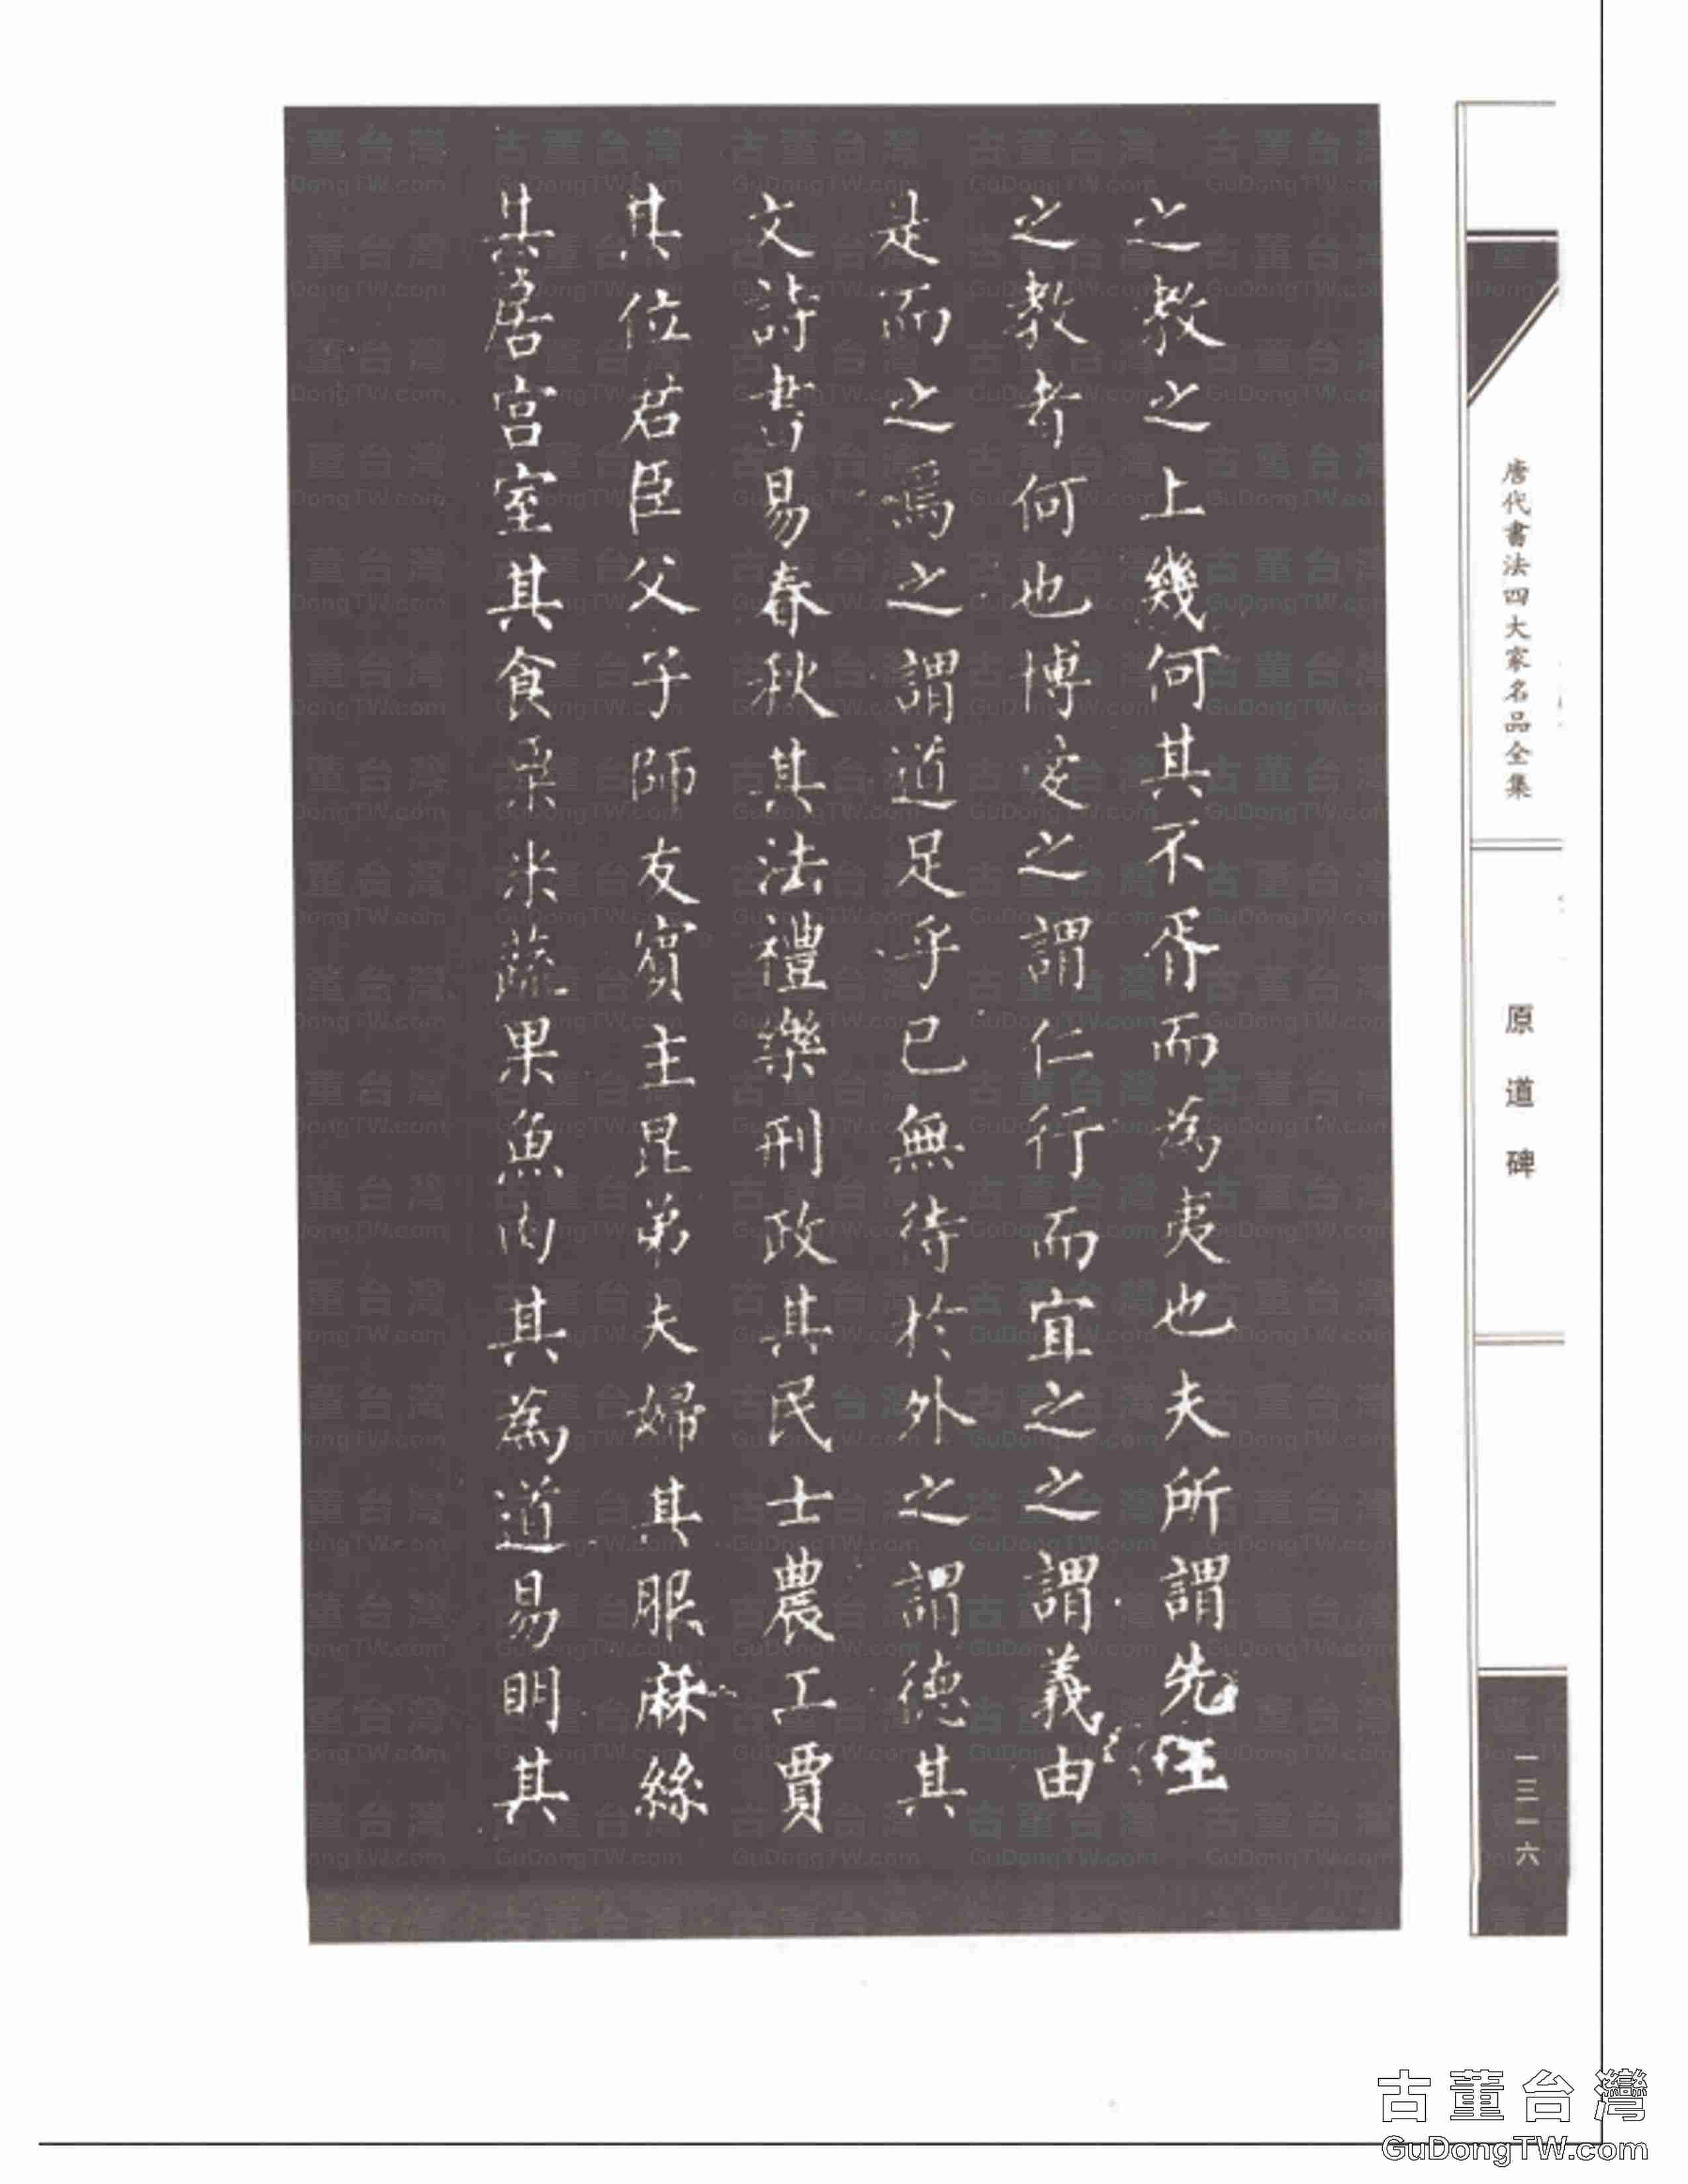 之教之上幾何其不胥而為夷也夫所謂先王
之教者何也博愛之謂仁行而宜之之謂義由
是而之焉之謂道足乎已無待於外之謂德其
文詩書易春秋其法禮樂刑政其民士農工賈
其位君臣父子師友賓主昆弟夫婦其服麻絲
其居宮室其食粟米蔬果魚肉其為道易明其
唐代書法四大家名品全集
原道碑
一三一六
古董台灣
GuDongTW.com